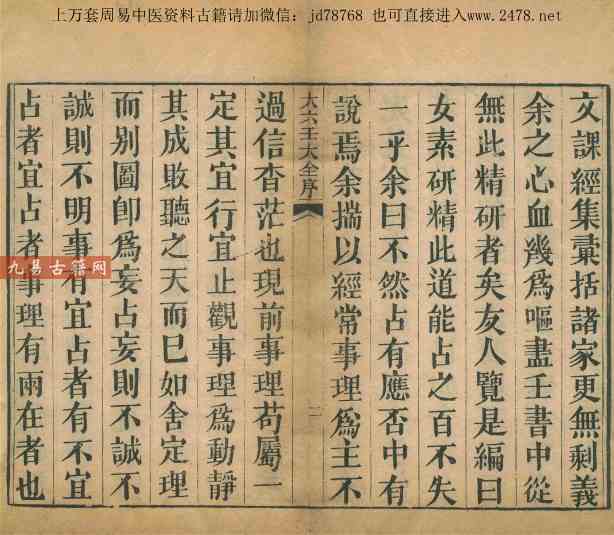 上万套周易中医资料古籍请加微信：jd78768 也可直接进入www.2478.net
文課經集彚括諸家更無剩義
余之心血幾爲嘔盡壬書中從
無此精研者矣友人覽是編曰
女素研精此道能占之百不失
一乎余曰不然占有應否中有
說焉余揣以經常事理爲主不
大六壬大全序
二
過信杳茫也現前事理苟屬一
定其宜行宜止觀事理爲動靜
其成敗聽之天而巳如舍定理
而别圖卽爲妄占妄則不誠不
誠則不明事有宜占者有不宜
占者宜占者事理有兩在者也
九易古籍网